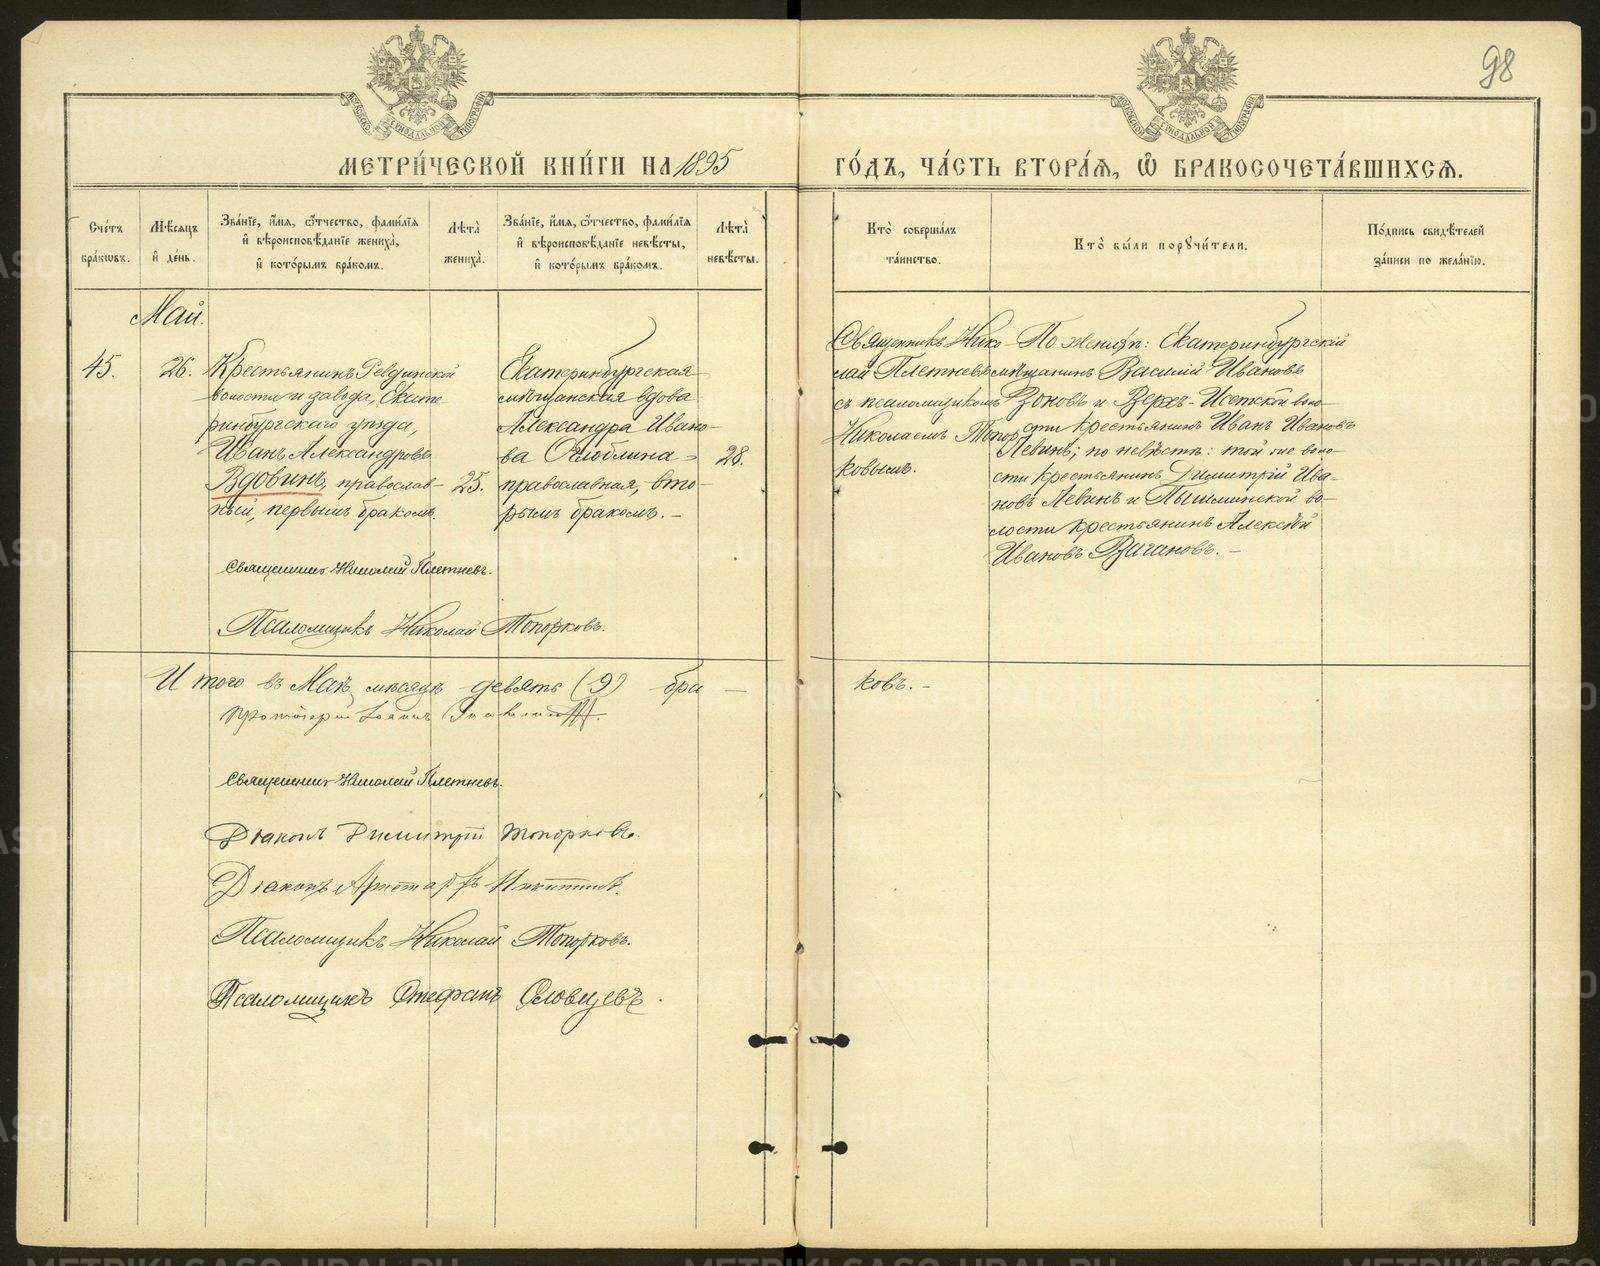 98
МЕТРИ́ЧЕСКОЙ КНИ́ГИ НА 1895 ГО́ДЪ, ЧА́СТЬ ВТОРА́Я, Ѡ БРАКОСОЧЕТА́ВШИХСЯ.
Сче́тъ бра́кωвъ.
Мѣ́сяцъ и҆ де́нь.
Зва́нїе, и҆́мя, ѻ҆́тчество, фами́лїя и҆ вѣроисповѣ́данїе жениха̀, и҆ кото́рымъ бра́комъ.
Лѣта̀ жениха̀.
Зва́нїе, и҆́мя, ѻ҆́тчество, фами́лїя и҆ вѣроисповѣ́данїе невѣ́сты, и҆ кото́рымъ бра́комъ.
Лѣта̀ невѣ́сты.
Кто̀ соверша́лъ та́инство.
Кто̀ бы́ли порꙋчи́тели.
По́дпись свидѣ́телей за́писи по жела́нїю.
Май.
45.
26.
Крестьянинъ Ревдинской
волости и завода, Екате
ринбургскаго уѣзда,
Иванъ Александровъ
Вдовинъ, православ-
ный, первымъ бракомъ.
25.
Екатеринбургская
мѣщанская вдова
Александра Ивано-
ва Оглоблина -
православная, вто-
рымъ бракомъ. -
28.
Священникъ Нико-
лай Плетневъ
съ псаломщикомъ
Николаемъ Топор
ковымъ.
По женихѣ: Екатеринбургскій
мѣщанинъ Василій Ивановъ
Зоновъ и Верх-Исетской воло-
сти крестьянинъ Иванъ Ивановъ
Левинъ; по невѣстѣ: той же воло-
сти крестьянинъ Димитрій Ива-
новъ Левинъ и Пышминской во-
лости крестьянинъ Алексѣй
Ивановъ Вагановъ. -
Священникъ Николай Плетневъ.
Псаломщикъ Николай Топорковъ.
Итого въ Маѣ мѣсяцѣ девять (9) бра - ковъ. -
Протоіерей Іоаннъ
Священникъ Николай Плетневъ.
Діаконъ Димитрій Топорковъ
Діаконъ Аристархъ Никитинъ.
Псаломщикъ Николай Топорковъ.
Псаломщикъ Стефанъ Словцевъ.
METRIKI.GASO-URAL.RU